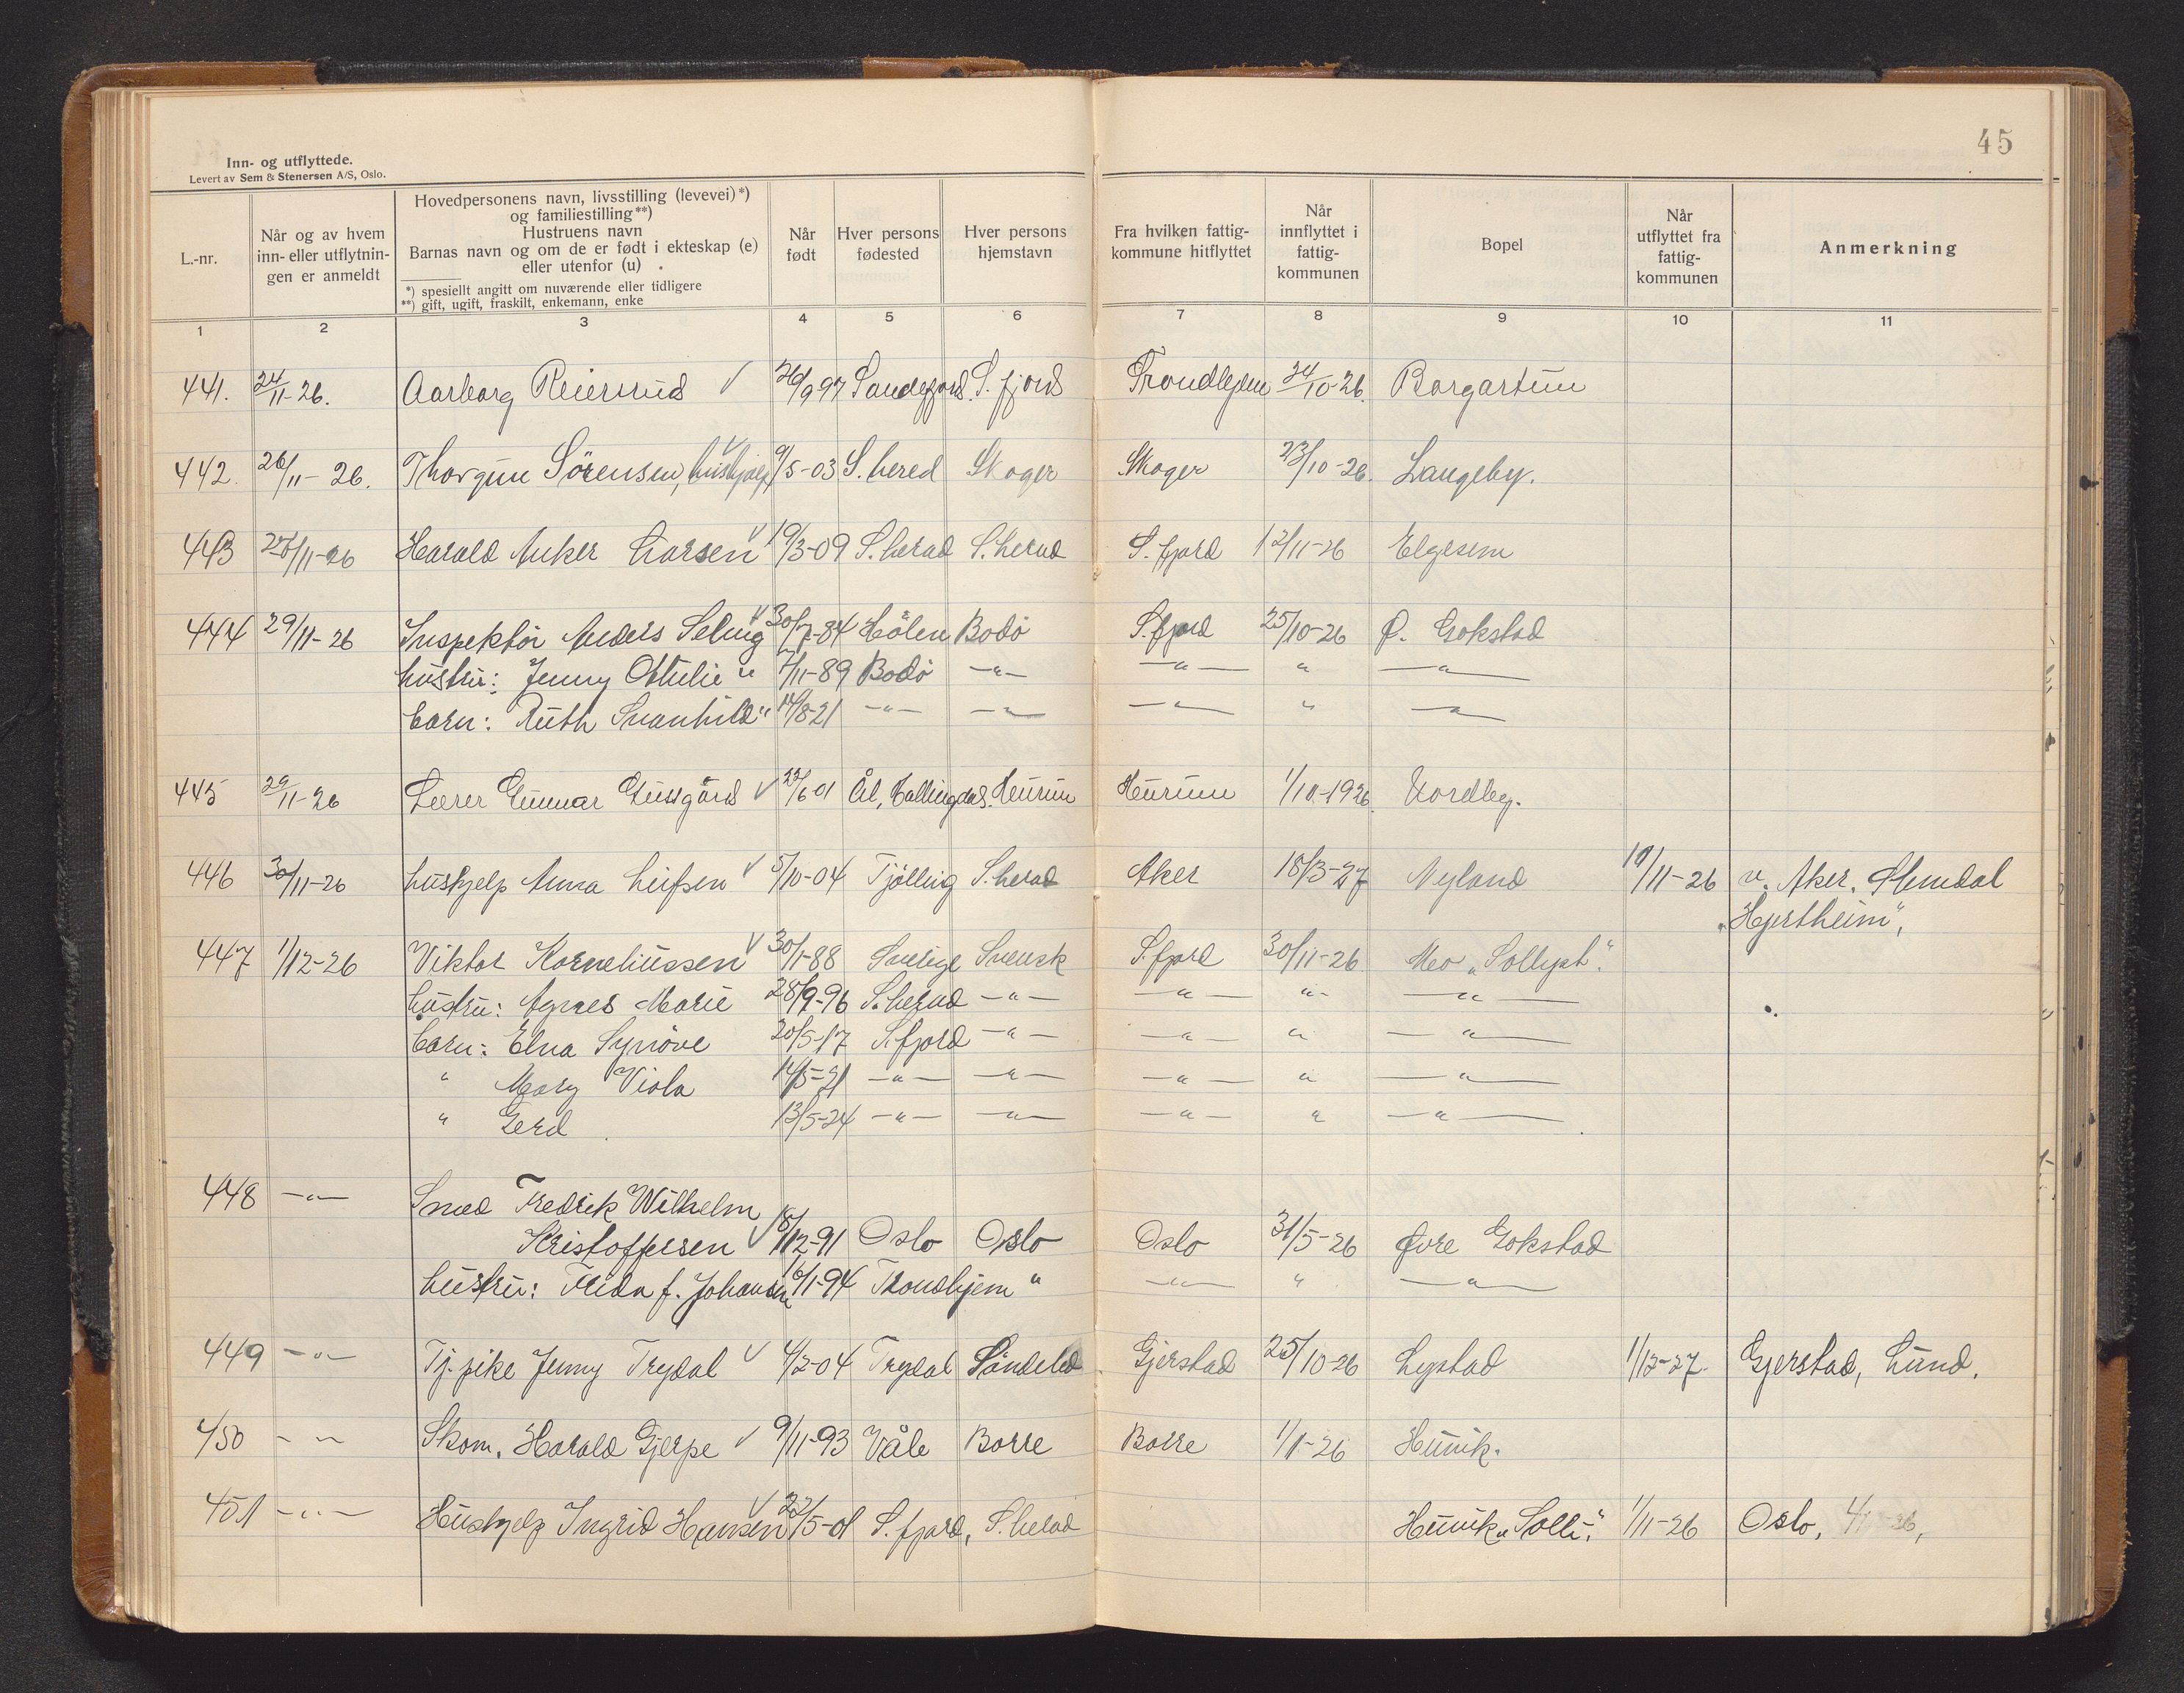 45
Inn- og utflyttede.
Levert av Sem & Stenersen A/S, Oslo.
L.-nr. Når og av hvem inn- eller utflytnin- gen er anmeldt Hovedpersonens navn, livsstilling (levevei)*) og familiestilling**) Hustruens navn Barnas navn og om de er født i ekteskap (e) eller utenfor (u) *) spesiellt angitt om nuværende eller tidligere **) gift, ugift, fraskilt, enkemann, enke Når født Hver persons fødested Hver persons hjemstavn Fra hvilken fattig- kommune hitflyttet Når innflyttet i fattig- kommunen Bopel Når utflyttet fra fattig- kommunen Anmerkning
1 2 3 4 5 6 7 8 9 10 11
441. 24/11-26. Aarborg Reiersrud √ 26/9 97 Sandefjord S. fjord Trondhjem 24/10-26. Borgartun
442. 26/11-26. Thorgun Sörensen, hushjelp √ 9/5-03 S. hered Skoger Skoger 23/10-26. Langeby.
443 27/11-26 Harald Anker Larsen √ 19/3-09 S. herad S. herad S. fjord 12/11-26 Elgesem
444 29/11-26 Inspektör Anders Selnig √ 30/7-84 Hölen Bodö S. fjord 25/10-26 Ø. Gokstad
hustru: Jenny Ottilie " 7/11-89 Bodö -"- -"- " -"-
barn: Ruth Svanhild " 14/8-21 -"- -"- -"- " -"-
445 29/11-26 Lærer Gunnar Gussgård √ 22/6 01 Ål, Hallingdal. Hurum Hurum 1/10-1926. Nordby.
446 30/11-26 hushjelp Anna Leifsen √ 5/10-04 Tjölling S. herad Aker 18/3-27 Nyland 19/11-26 v. Aker. Slemdal
"Hjertheim",
447 1/12-26 Viktor Korneliussen √ 30/1-88 Sverige Svensk S. fjord 30/11-26 Mo "Sollyst".
hustru: Agnes Marie 28/9-96 S. herad -"- -"- "- -"-
barn: Elna Synöve 20/5-17 S. fjord -"- -"- " -"-
" Mary Viola 14/5-21 -"- -"- -"- " -"-
" Gerd 13/5-24 -"- -"- -"- " -"-
448 -"- Smed Fredrik Wilhelm
Kristoffersen √ 18/12-91 Oslo Oslo Oslo 31/5-26 Øvre Gokstad
hustru: Frida f. Johansen 6/1-94 Trondhjem " -"- " -"-
449 -"- Tj.pike Jenny Trydal √ 4/2-04 Trydal Söndeled Gjerstad 25/10-26 Lystad 1/12-27. Gjerstad, Lund.
450 - " - Skom. Harald Gjerpe √ 9/11-93 Våle Borre Borre 1/1-26 Hunik.
451 -"- Hushjelp Ingrid Hansen √ 22/5-01 S. fjord, S. herad Hunik "Solli". 1/11-26 Oslo,